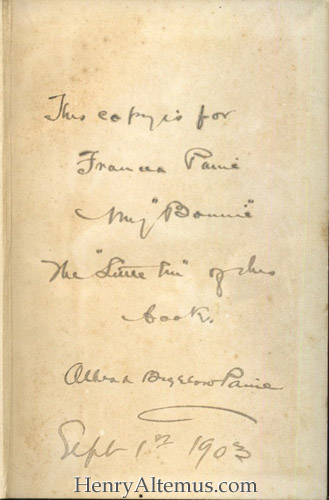 This copy is for
Frances Paine
My "Bonnie"
The "Little 'un" of this
book.
Albert Bigelow Paine
Sept 1st 1903
HenryAltemus.com